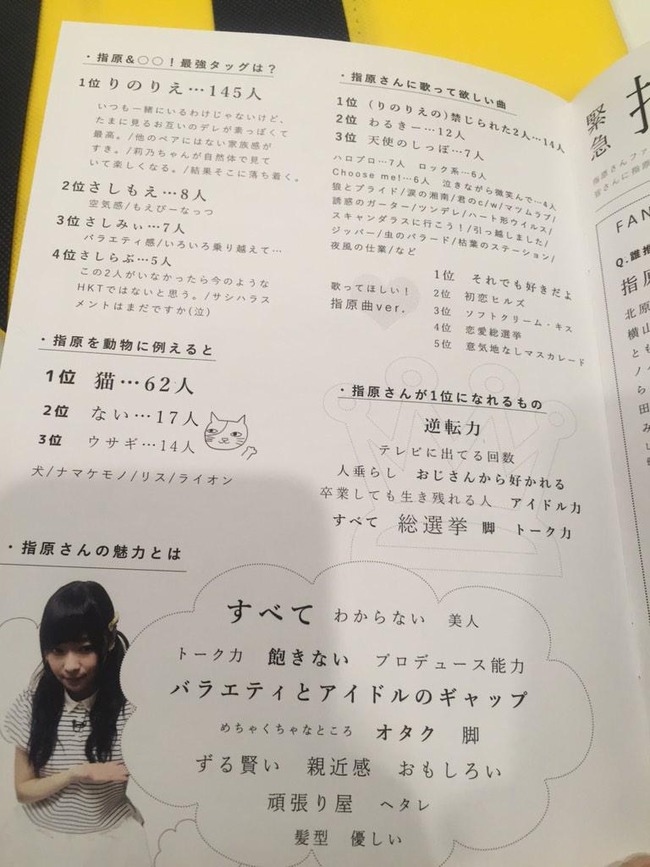 ・指原&○○！最強タッグは？
1位 りのりえ…145人
いつも一緒にいるわけじゃないけど、
たまに見るお互いのデレが素っぽくて
最高。/他のペアにはない家族感が
すき。/莉乃ちゃんが自然体で見て
いて楽しくなる。/結果そこに落ち着く。
2位 さしもえ…8人
空気感/もえぴーなっつ
3位 さしみぃ…7人
バラエティ感/いろいろ乗り越えて…
4位 さしらぶ…5人
この2人がいなかったら今のような
HKTではないと思う。/サシハラス
メントはまだですか(泣)
・指原を動物に例えると
1位 猫…62人
2位 ない…17人
3位 ウサギ…14人
犬/ナマケモノ/リス/ライオン
・指原さんに歌って欲しい曲
1位 (りのりえの)禁じられた2人…14人
2位 わるきー…12人
3位 天使のしっぽ…7人
ハロプロ…7人 ロック系…6人
Choose me!…6人 泣きながら微笑んで…4人
狼とプライド/涙の湘南/君のc/w/マツムラブ/
誘惑のガーター/ツンデレ/ハート形ウイルス/
スキャンダラスに行こう!/引っ越しました/
ジッパー/虫のバラード/枯葉のステーション/
夜風の仕業/など
歌ってほしい！
指原曲ver.
1位 それでも好きだよ
2位 初恋ヒルズ
3位 ソフトクリーム・キス
4位 恋愛総選挙
5位 意気地なしマスカレード
・指原さんが1位になれるもの
逆転力
テレビに出てる回数
人垂らし おじさんから好かれる
卒業しても生き残れる人 アイドル力
すべて 総選挙 脚 トーク力
・指原さんの魅力とは
すべて わからない 美人
トーク力 飽きない プロデュース能力
バラエティとアイドルのギャップ
めちゃくちゃなところ オタク 脚
ずる賢い 親近感 おもしろい
頑張り屋 ヘタレ
髪型 優しい
緊急
指原さんファ
皆さんに指原
FAN
Q.誰推
指原
北原
横山
とも
ノイ
らし
田
み